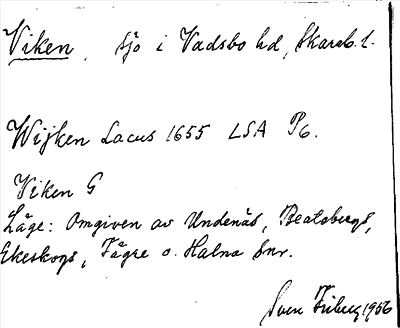 Viken, sjö i Vadsbo hd, Skarab. l.
Wijken Lacus 1655 LSA P6.
Viken G
Läge: Omgiven av Undenäs, Beatebergs,
Ekeskogs, Fägre o. Halna snr.
Sven Friberg 1956